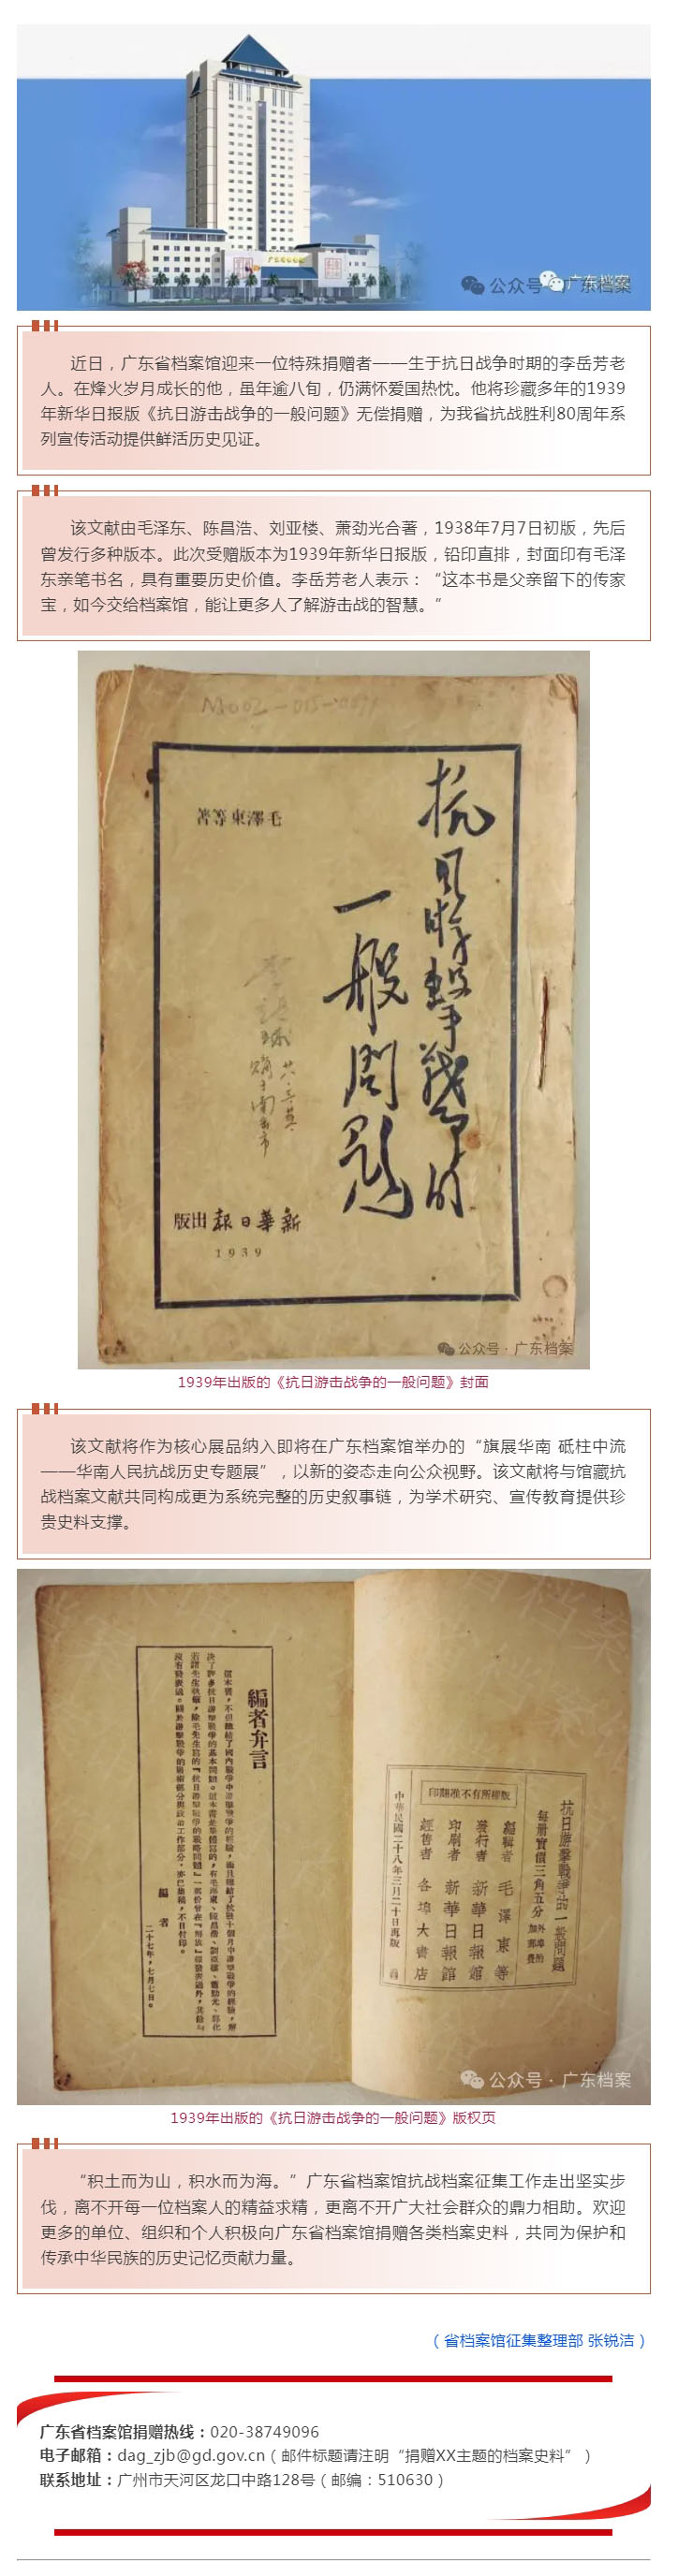 广东省档案馆
公众号·广东档案
广东档案
近日，广东省档案馆迎来一位特殊捐赠者——生于抗日战争时期的李岳芳老
人。在烽火岁月成长的他，虽年逾八旬，仍满怀爱国热忱。他将珍藏多年的1939
年新华日报版《抗日游击战争的一般问题》无偿捐赠，为我省抗战胜利80周年系
列宣传活动提供鲜活历史见证。
该文献由毛泽东、陈昌浩、刘亚楼、萧劲光合著，1938年7月7日初版，先后
曾发行多种版本。此次受赠版本为1939年新华日报版，铅印直排，封面印有毛泽
东亲笔书名，具有重要历史价值。李岳芳老人表示：“这本书是父亲留下的传家
宝，如今交给档案馆，能让更多人了解游击战的智慧。”
抗日游擊戰爭的
一般問題
毛澤東等著
新華日報出版
1939
公众号·广东档案
1939年出版的《抗日游击战争的一般问题》封面
该文献将作为核心展品纳入即将在广东档案馆举办的“旗展华南 砥柱中流
——华南人民抗战历史专题展”，以新的姿态走向公众视野。该文献将与馆藏抗
战档案文献共同构成更为系统完整的历史叙事链，为学术研究、宣传教育提供珍
贵史料支撑。
編者弁言
編者
二十七年，七月七日。
抗日游擊戰爭的一般問題
每册實價三角五分
外埠酌加郵費
編輯者 毛澤東等
發行者 新華日報館
印刷者 新華日報館
經售者 各埠大書店
版權所有不准翻印
中華民國二十八年三月二十日再版
公众号·广东档案
1939年出版的《抗日游击战争的一般问题》版权页
“积土而为山，积水而为海。”广东省档案馆抗战档案征集工作走出坚实步
伐，离不开每一位档案人的精益求精，更离不开广大社会群众的鼎力相助。欢迎
更多的单位、组织和个人积极向广东省档案馆捐赠各类档案史料，共同为保护和
传承中华民族的历史记忆贡献力量。
（省档案馆征集整理部 张锐洁）
广东省档案馆捐赠热线：020-38749096
电子邮箱：dag_zjb@gd.gov.cn（邮件标题请注明“捐赠XX主题的档案史料”）
联系地址：广州市天河区龙口中路128号（邮编：510630）